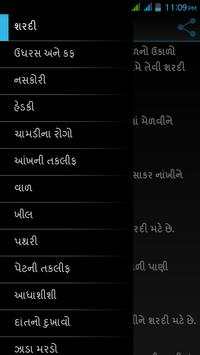 11:09 PM
શરદી
ઉધરસ અને કફ
નસકોરી
હેડકી
ચામડીના રોગો
આંખની તકલીફ
વાળ
ખીલ
પથરી
પેટની તકલીફ
આધાશીશી
દાંતનો દુખાવો
ઝાડા મરડો
નો ઉકાળો
મે તેવી શરદી
માં મેળવીને
સાકર નાંખીને
શરદી મટે છે.
ની પાણી
ીને શરદી મટે છે.